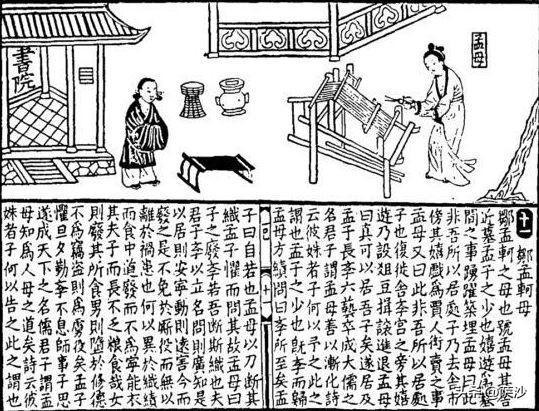 書院
孟母
十一
鄒孟軻母
鄒孟軻之母也號孟母其舍
近墓孟子之少也嬉遊為墓
間之事踴躍築埋孟母曰此
非吾所以居處子乃去舍市
傍其嬉戲為賈人衒賣之事
孟母又曰此非吾所以居處
子也復徙舍斈宮之旁其嬉
遊乃設俎豆揖讓進退孟母
曰真可以居吾子矣遂居及
孟子長斈六藝卒成大儒之
名君子謂孟母善以漸化詩
云彼姝者子何以予之此之
謂也孟子之少也既斈而歸
孟母方績問曰斈所至矣孟
十一
子曰自若也孟母以刀斷其
織孟子懼而問其故孟母曰
子之廢斈若吾斷斯織也夫
君子斈以立名問則廣知是
以居則安寧動則遠害今而
廢之是不免於厮役而無以
離於禍患也何以異於織績
而食中道廢而不為寧能衣
其夫子而長不乏粮食哉女
則廢其所食男則墮於修德
不為竊盜則為虜役矣孟子
懼旦夕勤斈不息師事子思
遂成天下之名儒君子謂孟
母知為人母之道矣詩云彼
姝者子何以告之此之謂也